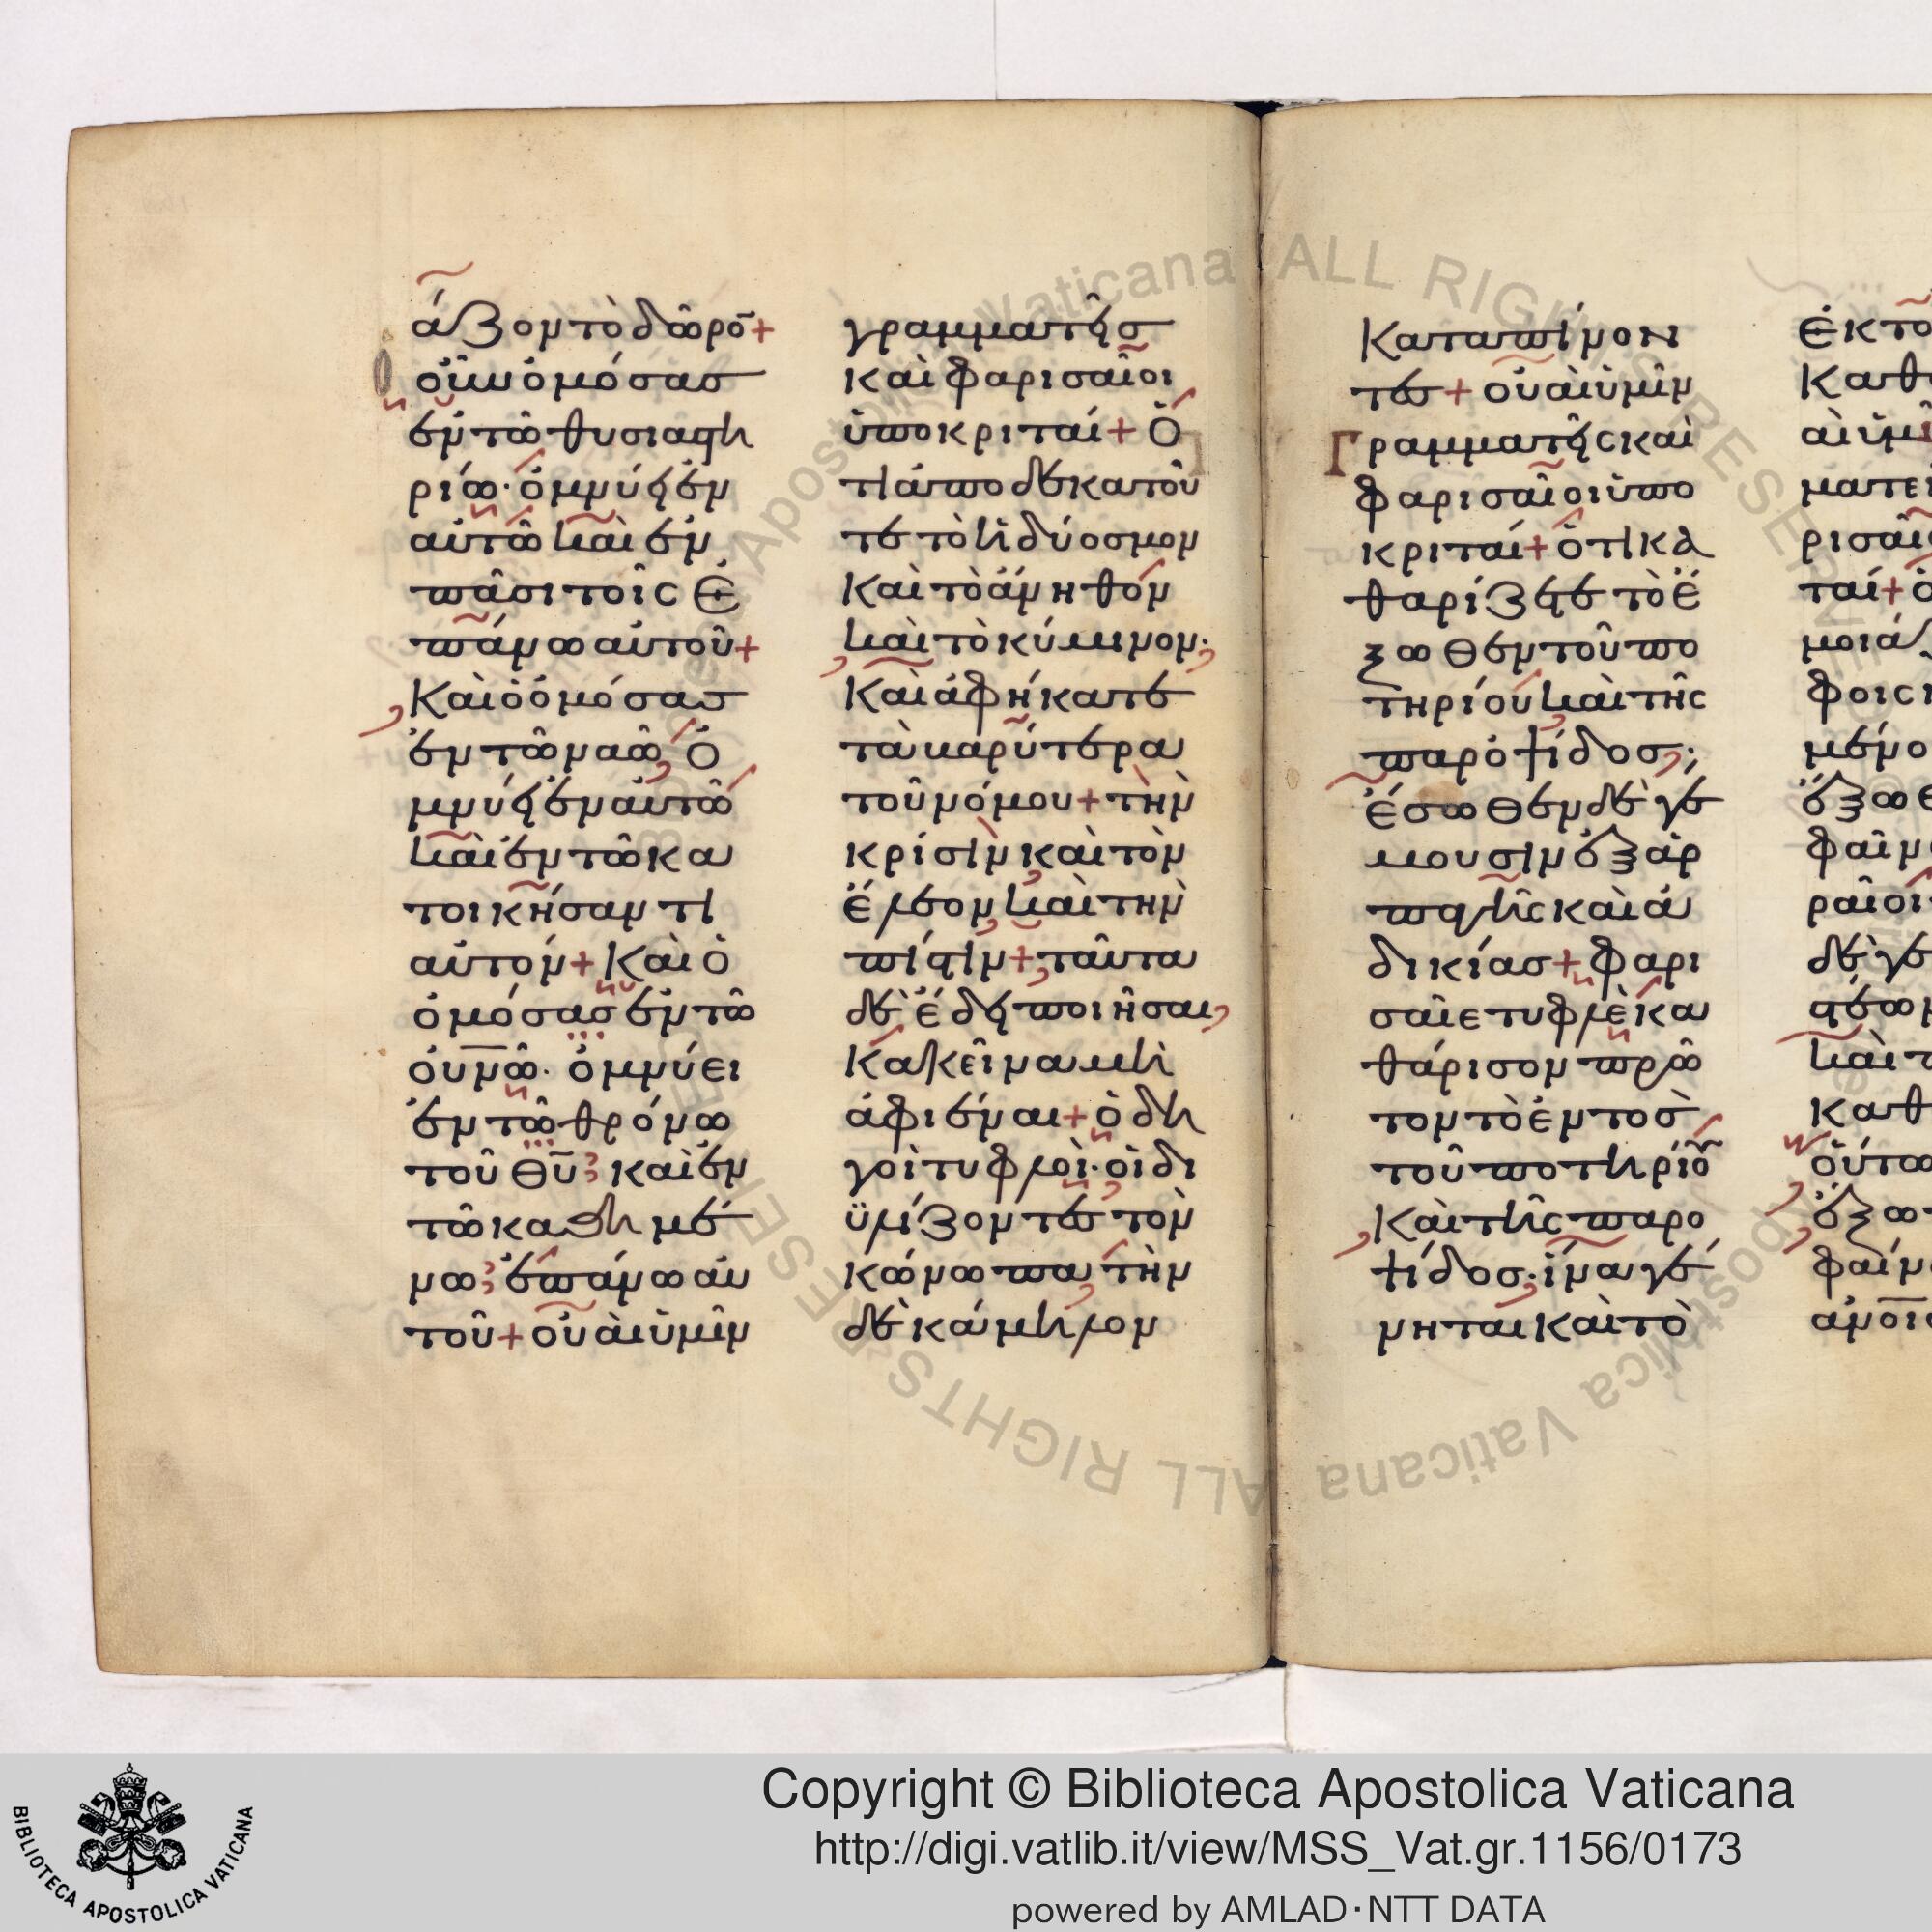 ἁγιάζον τὸ δῶρο̄+
ὁ οὖν ὀμόσασ
ἐν τῶ θυσιαστη
ρίω· ὀμνύει ἐν
αὐτῶ καὶ ἐν
πᾶσι τοῖς ἐ
πάνω αὐτοῦ+
Καὶ ὁ ὀμόσασ
ἐν τῶ ναῶ, ὀ
μνύει ἐν αὐτῶ
καὶ ἐν τῶ κα
τοικήσαντι
αὐτόν+ Καὶ ὁ
ὀμόσασ ἐν τῶ
οὐνῶ· ὀμνύει
ἐν τῶ θρόνω
τοῦ θῡ καὶ ἐν
τῶ καθημέ
νω ἐπάνω αὐ
τοῦ+ οὐαὶ ὑμῖν
γραμματεῖσ
καὶ φαρισαῖοι
ὑποκριταί+ Ὅ
τι ἀποδεκατοῦ
τε τὸ ἡδύοσμον
Καὶ τὸ ἄνηθον
καὶ τὸ κύμινον·
Καὶ ἀφήκατε
τὰ βαρύτερα
τοῦ νόμου+ τὴν
κρίσιν καὶ τὸν
ἔλεον καὶ τὴν
πίστιν+ ταῦτα
δὲ ἔδει ποιῆσαι,
Κακεῖνα μὴ
ἀφιέναι+ ὁδη
γοὶ τυφλοὶ· οἱ δι
ϋλίζοντεσ τὸν
κώνωπα τὴν
δὲ κάμηλον
Καταπίνον
τεσ+ οὐαὶ ὑμῖν
Γραμματεῖς καὶ
φαρισαῖοι ὑπο
κριταί+ ὅτι κα
θαρίζετε τὸ ἔ
ξωθεν τοῦ πο
τηρίου καὶ τῆς
παροψίδοσ,;
Ἔσωθεν δὲ γέ
μουσιν ἐξ ἁρ
παγῆς καὶ ἀ
δικίασ+ φαρι
σαῖε τυφλὲ κα
θάρισον πρῶ
τον τὸ ἐντοσ
τοῦ ποτηρίου
Καὶ τῆς παρο
ψίδοσ· ἵνα γέ
νηται καὶ τὸ
Ἐκτο
Καθ
αὶ ὑμῖ
ματει
ρισαῖ
ταί+ ὁ
μοιά
φοις
μένο
ἔξωθ
φαῖν
ραῖοι
δὲ γέ
στέων
καὶ
Καθ
οὕτω
ἔξω
φαίν
ἀνοι
Copyright © Biblioteca Apostolica Vaticana
http://digi.vatlib.it/view/MSS_Vat.gr.1156/0173
powered by AMLAD·NTT DATA
BIBLIOTECA APOSTOLICA VATICANA